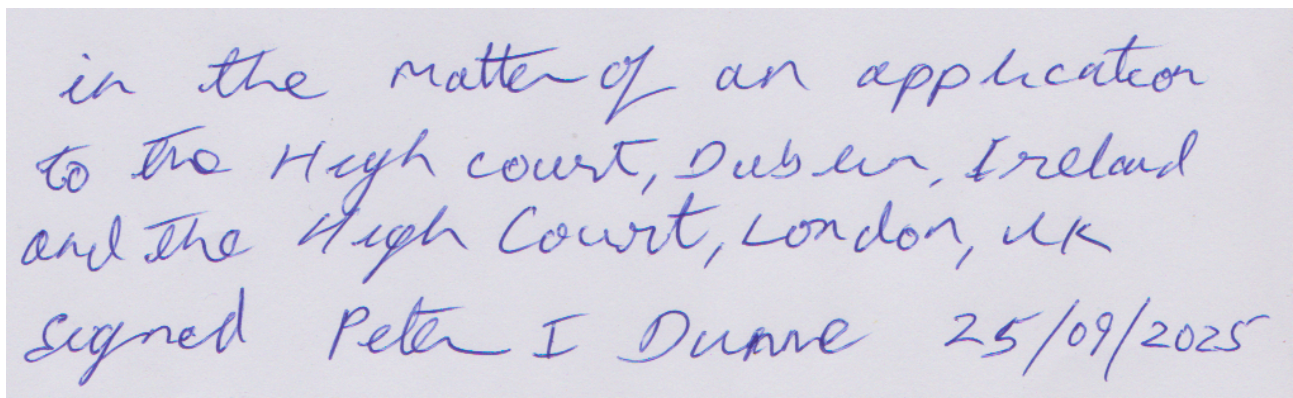 in the matter of an application
to the High court, Dublin, Ireland
and the High Court, London, UK
signed Peter I Dunne 25/09/2025